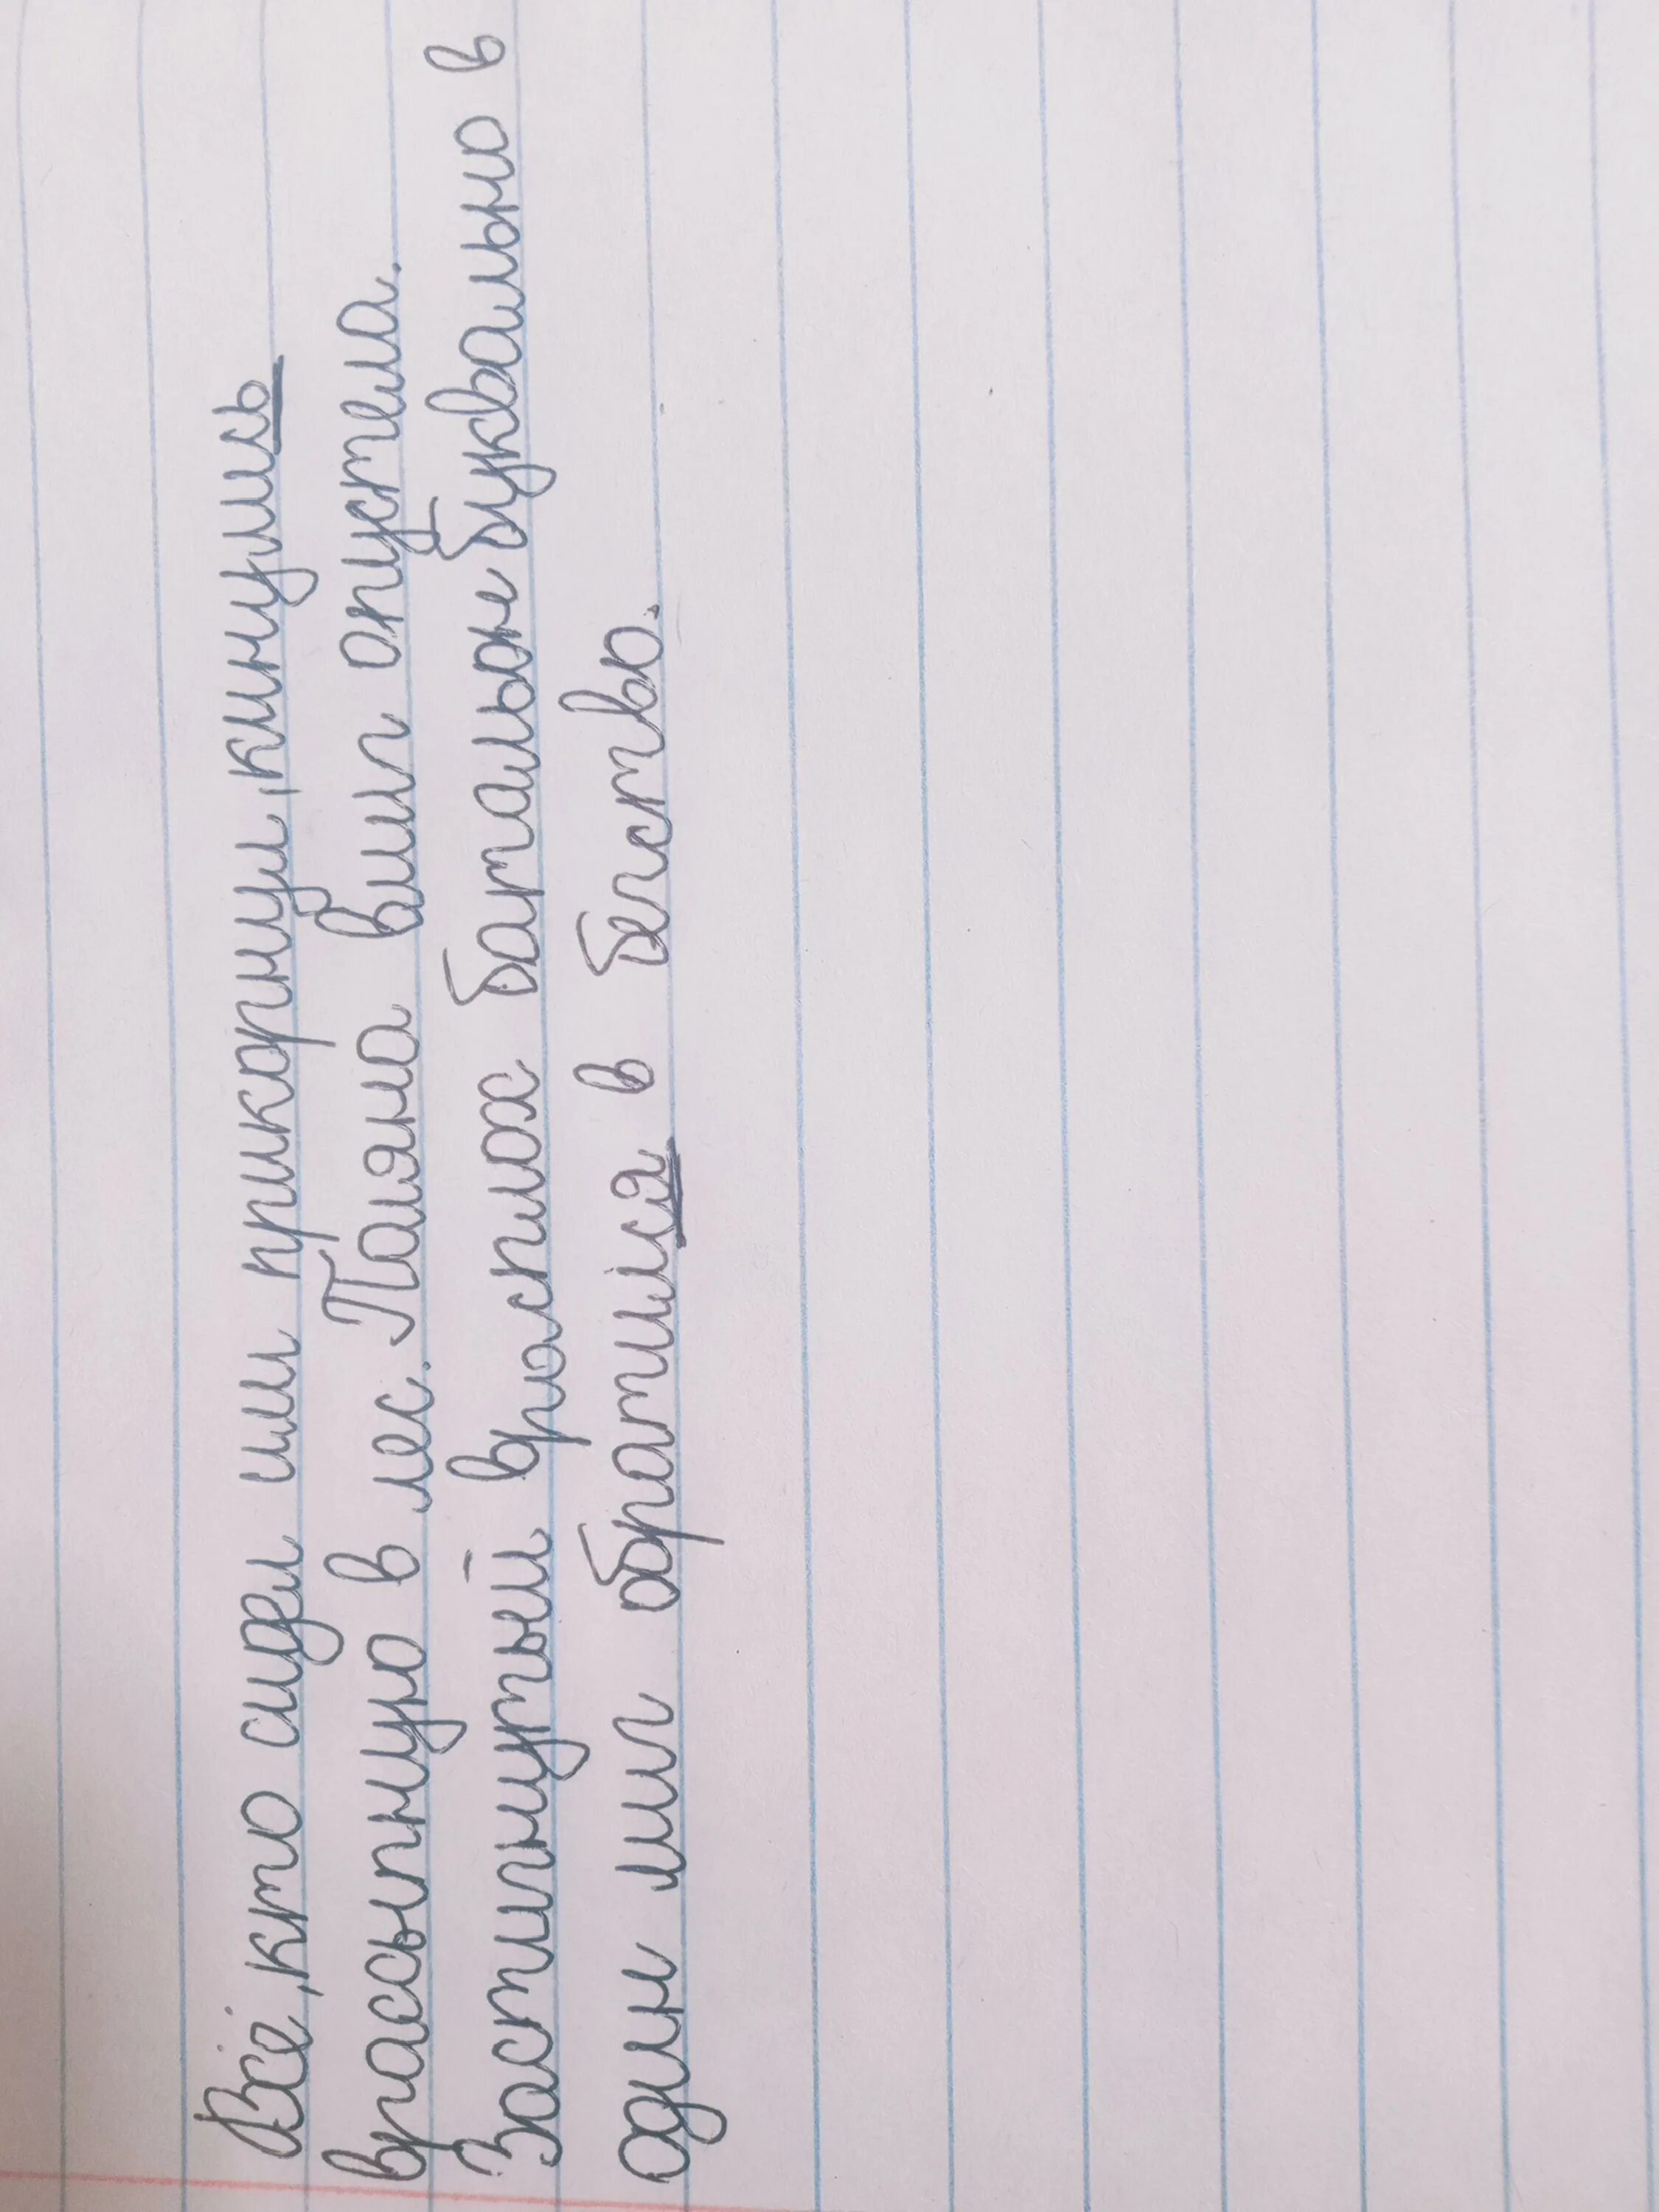 Всё, кто сидел или прикорнул, кинулись
врассыпную в лес. Поляна вмиг опустела.
Застигнутый врасплох батальон буквально в
один миг обратился в бегство.